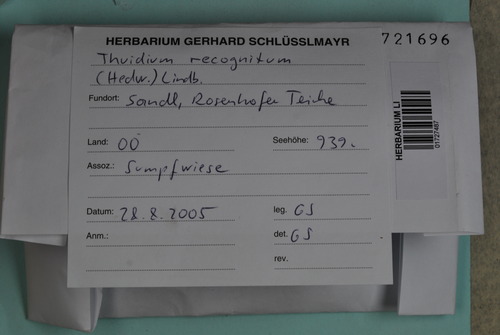 HERBARIUM GERHARD SCHLÜSSLMAYR
721696
Thuidium recognitum
(Hedw.) Lindb.
Fundort: Sandl, Rosenhofer Teiche
Land: OÖ Seehöhe: 939.
Assoz.: Sumpfwiese
Datum: 28.8.2005 leg. GS
Anm.: det. GS
rev.
HERBARIUM LI
01727487